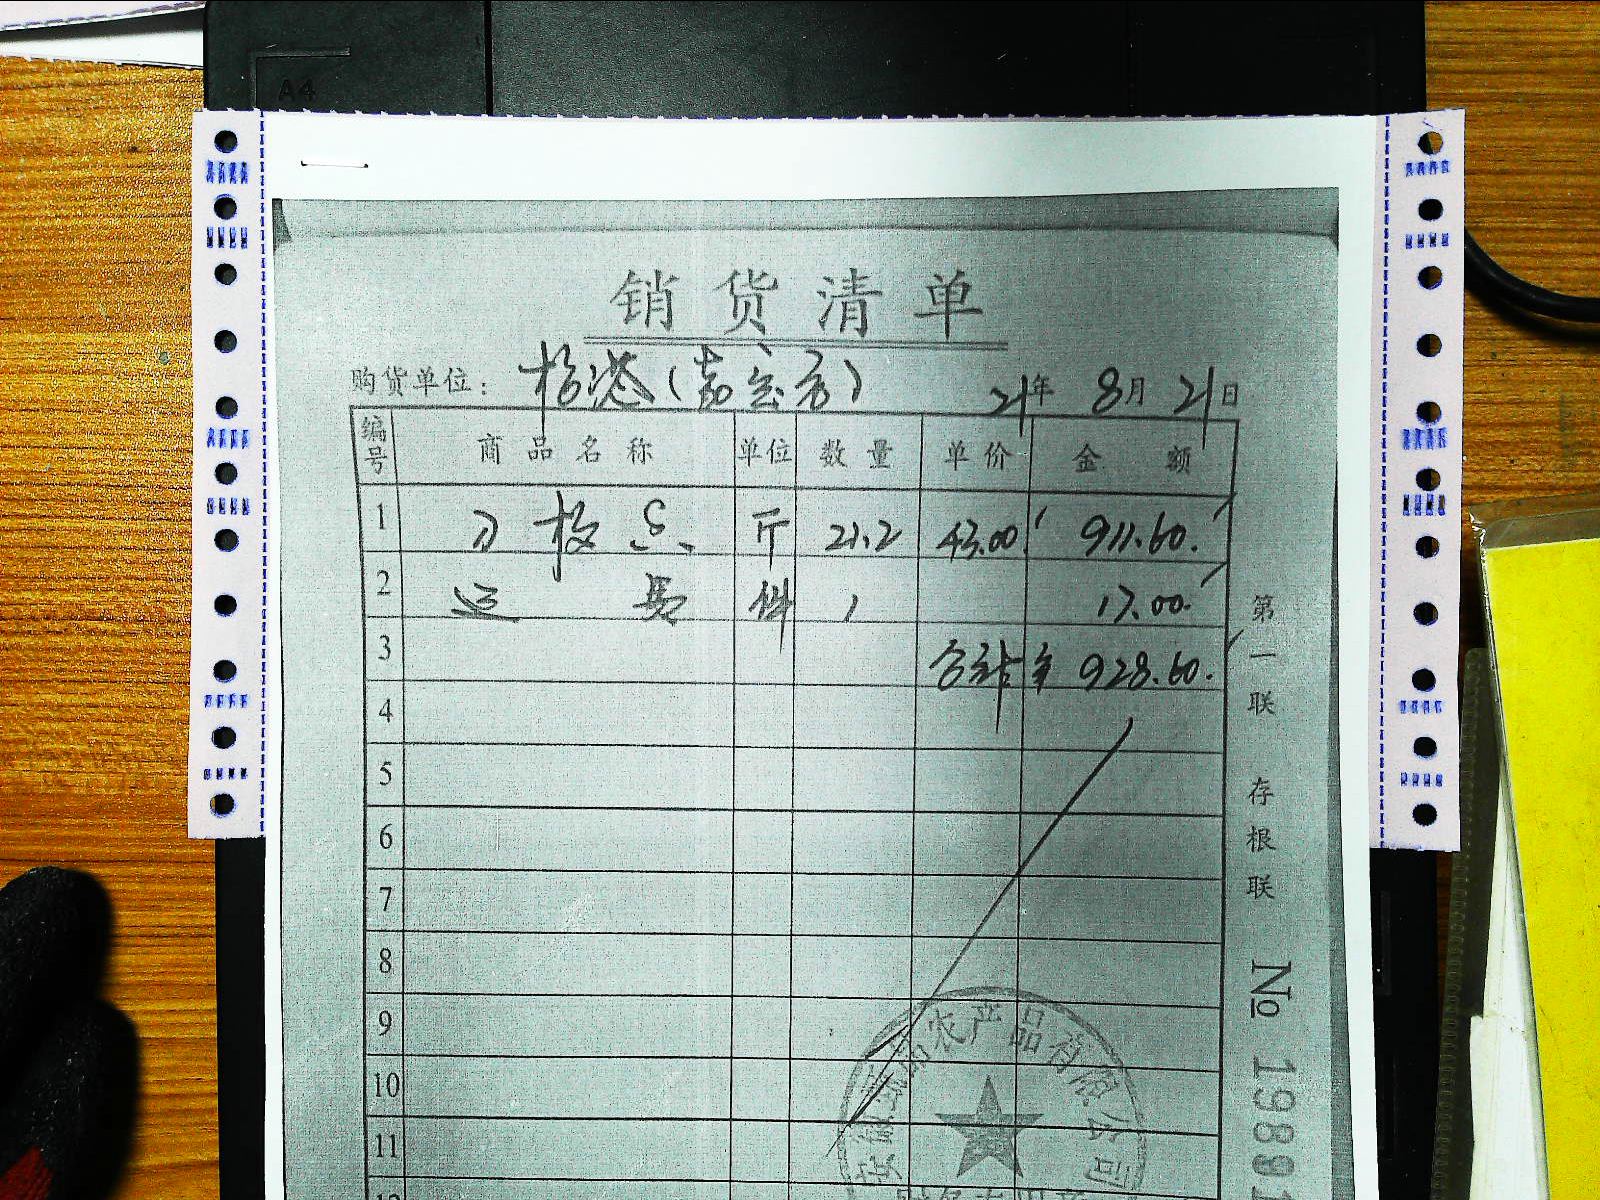 A4
销货清单
购货单位: 杨港(嘉会房) 21年 8月 21日
编号 商品名称 单位 数量 单价 金额
1 刀板 斤 21.2 43.00 911.60
2 运费 件 1 17.00
3 合计 ¥ 928.60
4
5
6
7
8
9
10
11
第一联 存根联 № 1989
农产品有限公司